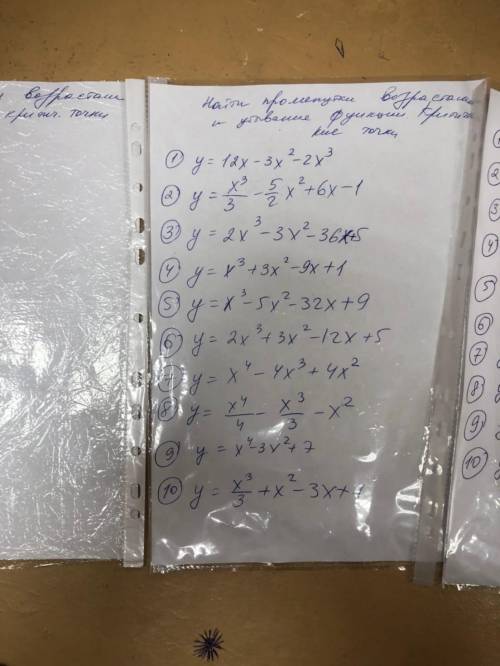 возрастани
критич. точки
Найти промежутки возрастания
и убывание функции. Критиче
кие точки
① y = 12x - 3x² - 2x³
② y = x³/3 - 5/2 x² + 6x - 1
③ y = 2x³ - 3x² - 36x + 5
④ y = x³ + 3x² - 9x + 1
⑤ y = x³ - 5x² - 32x + 9
⑥ y = 2x³ + 3x² - 12x + 5
⑦ y = x⁴ - 4x³ + 4x²
⑧ y = x⁴/4 - x³/3 - x²
⑨ y = x⁴ - 3x² + 7
⑩ y = x³/3 + x² - 3x +
②
③
④
⑤
⑥
⑦
⑧
⑨
⑩